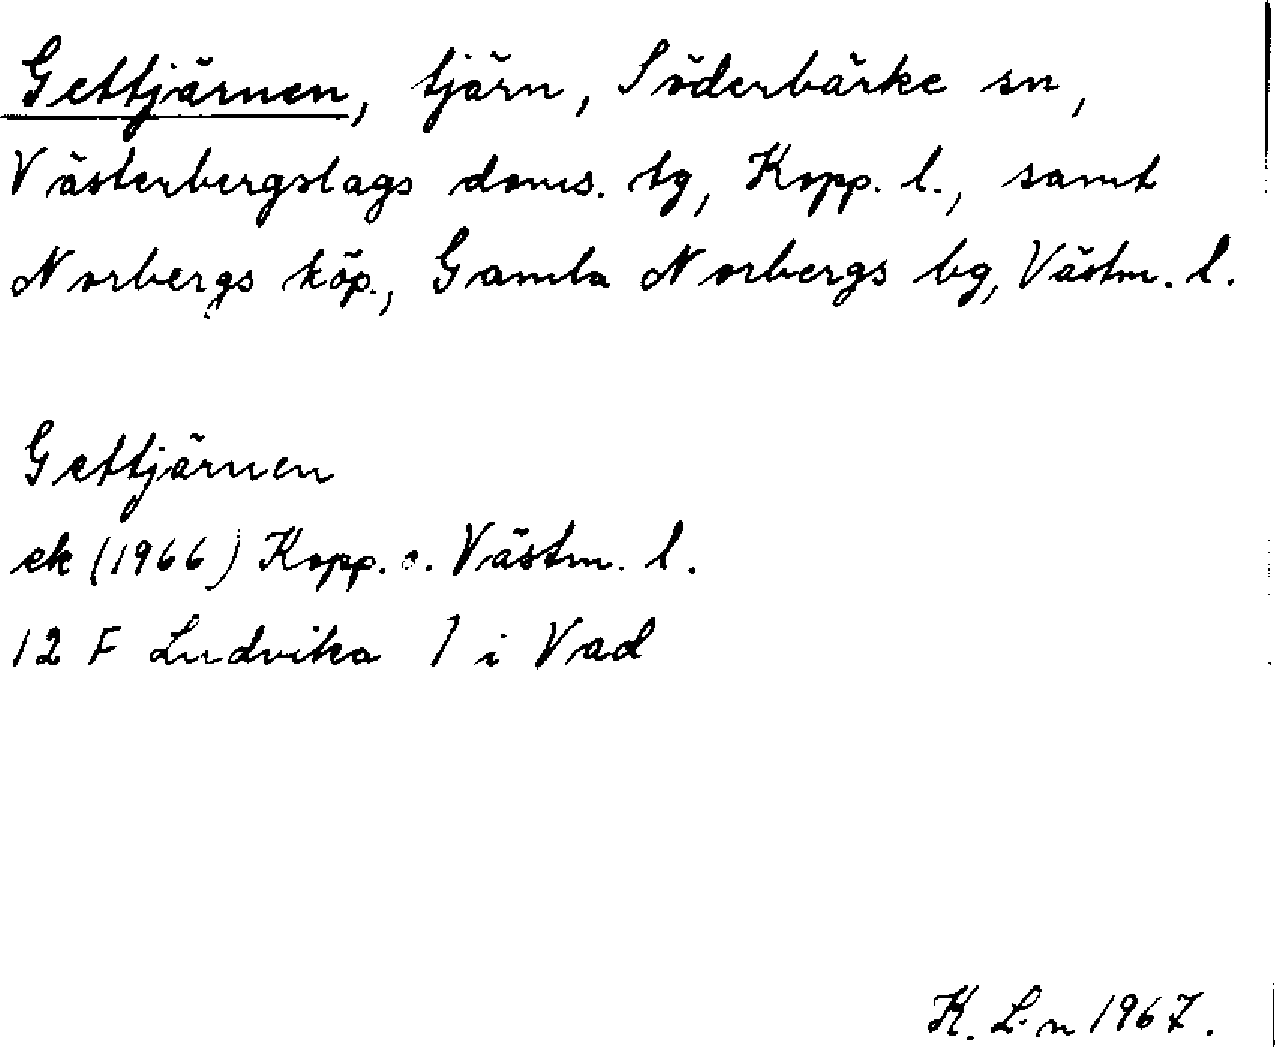 Gettjärnen, tjärn, Söderbärke sn,
Västerbergslags doms. tg, Kopp. l., samt
Norbergs köp., Gamla Norbergs bg, Västm. l.
Gettjärnen
ek (1966) Kopp. o. Västm. l.
12 F Ludvika 1 i Vad
K. L-n 1967.